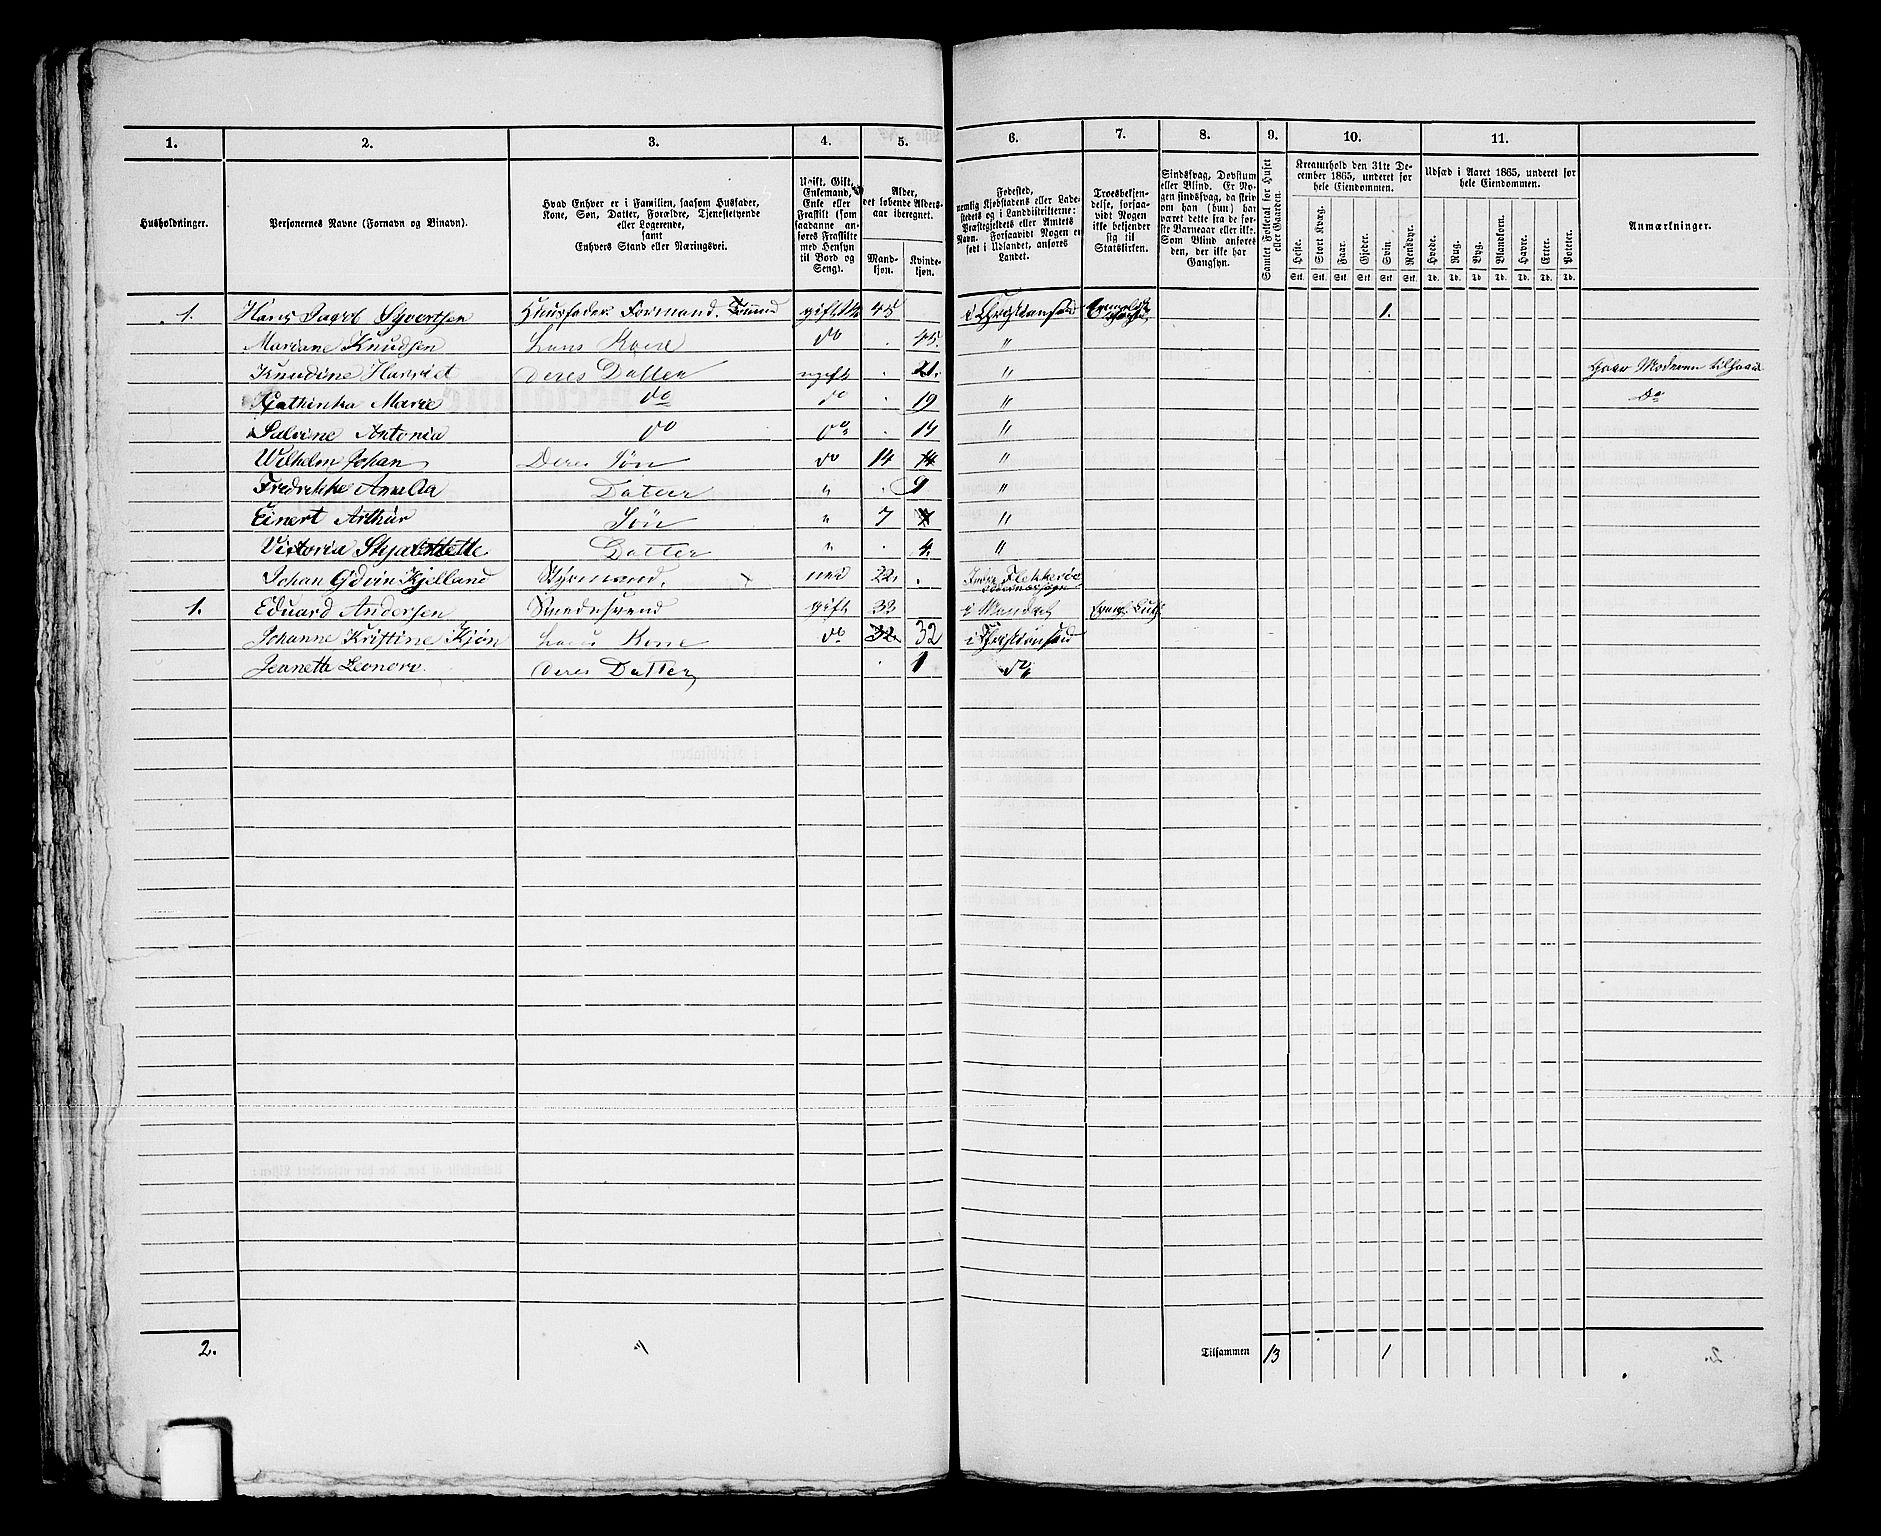 1. 2. 3. 4. 5. 6. 7. 8. 9. 10. 11.
Husholdninger.
Personernes Navne (Fornavn og Binavn).
Hvad Enhver er i Familien, saasom Husfader,
Kone, Søn, Datter, Forældre, Tjenestetyende
eller Logerende,
samt
Enhvers Stand eller Næringsvei.
Ugift, Gift,
Enkemand,
Enke eller
Fraskilt (som
saadanne an-
føres Fraskilte
med Hensyn
til Bord og
Seng).
Alder,
det løbende Alders-
aar iberegnet.
Mand-
kjøn.
Kvinde-
kjøn.
Fødested,
nemlig Kjøbstadens eller Lade-
stedets og i Landdistrikterne:
Præstegjeldets eller Amtets
Navn. Forsaavidt Nogen er
født i Udlandet, anføres
Landet.
Troesbekjen-
delse, forsaa-
vidt Nogen
ikke bekjender
sig til
Statskirken.
Sindssvag, Døvstum
eller Blind. Er No-
gen sindssvag, da skriv
om han (hun) har
været dette fra de før-
ste Barneaar eller ikke.
Som Blind anføres
den, der ikke har
Gangsyn.
Samlet Folketal for Huset
eller Gaarden.
Kreaturhold den 31te De-
cember 1865, underet for
hele Eiendommen.
Heste. Stort Kvæg. Faar. Gjeder. Svin. Rensdyr.
Stk. Stk. Stk. Stk. Stk. Stk.
Udsæd i Aaret 1865, underet for
hele Eiendommen.
Hvede. Rug. Byg. Blandkorn. Havre. Erter. Poteter.
Td. Td. Td. Td. Td. Td. Td.
Anmærkninger.
1. Hans Jacob Syvertsen Huusfader Formand. gift 45 i Christiansand 1.
Mariane Knudsen hans Kone do . 45. "
Knudine Harriet Deres Datter ugift . 21. "
Kathinka Marie do do . 19 " do
Salvine Antonia do do . 14 "
Wilhelm Johan Deres Søn do 14 14 "
Fredrikke Amelia Datter " . 9 "
Einert Arthur Søn " 7 "
Victoria Datter " . 4. "
Johan Kjelland Styrmand. 22. . Flekkerøe
1. Eduard Andersen Smedesvend gift 33 i Mandal Evangl. Luth.
Johanne Kristine Kjøn hans Kone do 32 32 i Christiansand
Jeanette Leonore Deres Datter . 1 do
2. Tilsammen 13 1